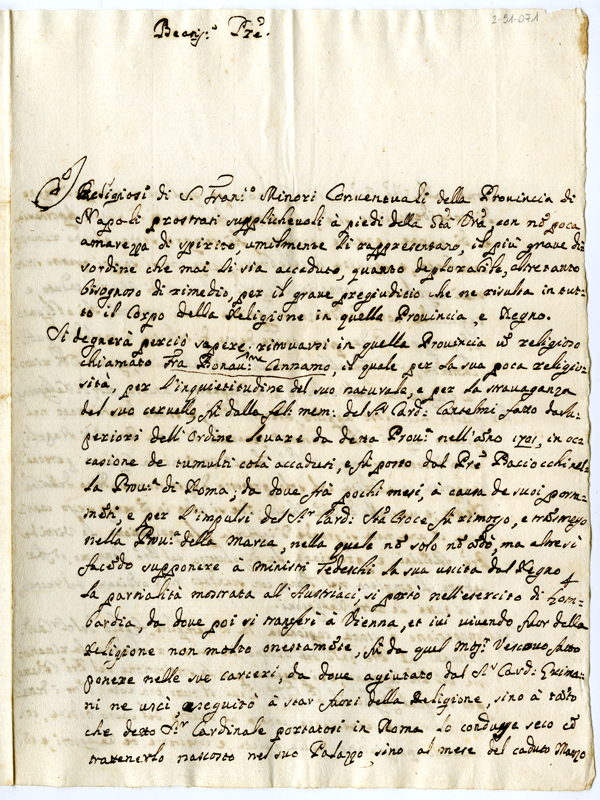 2-91-071
Beatis.º Prē.
Religiosi di S. Fran.º Minori Conventuali della Provincia di
Napoli prostrati supplichevoli à piedi della Stà Vrā, con nō poca
amarezza di spirito, umilmente li rappresentano, il più grave di-
sordine che mai li sia accaduto, quanto deplorabile, altretanto
bisognoso di rimedio, per il grave pregiudicio che ne risulta in tut-
to il Corpo della Religione in quella Provincia, e Regno.
Si degnerà perciò sapere, ritrovarsi in quella Provincia ū religioso
chiamato Fra Bonav.ra Cennamo, il quale per la sua poca religio-
sità, per l'inquietitudine del suo naturale, e per la stravaganza
del suo cervello, fù dalla feli: mem: del Sr Card: Cantelmi fatto da Su-
periori dell'Ordine levare da detta Prov.a nell'año 1701, in oca
casione de tumulti colà accaduti, e fù posto dal Prē Baciocchi nel-
la Prov.a di Roma, da dove frà pochi mesi, à causa de suoi porta-
mēti, e per l'impulsi del Sr Card: Stā Croce fù rimosso, e trāsmesso
nella Prov.a della Marca, nella quale nō solo nō ādò, ma altresì
facēdo supponere à ministri Tedeschi la sua uscita dal Regno
la partialità mostrata all'Austriaci, si portò nell'esercito di Lom-
bardia, da dove poi si transferì à Vienna, et ivi vivendo fuor della
Religione non molto onestamēte, fù da quel Mōs.r Vescovo fatto
ponere nelle sue carceri, da dove agiutato dal Sr Card: Grima-
ni ne uscì, e seguitò à star fuori della Religione, sino à tāto
che detto Sr Cardinale portatosi in Roma lo condusse seco cō
trattenerlo nascosto nel suo Palazzo, sino al mese del caduto Marzo